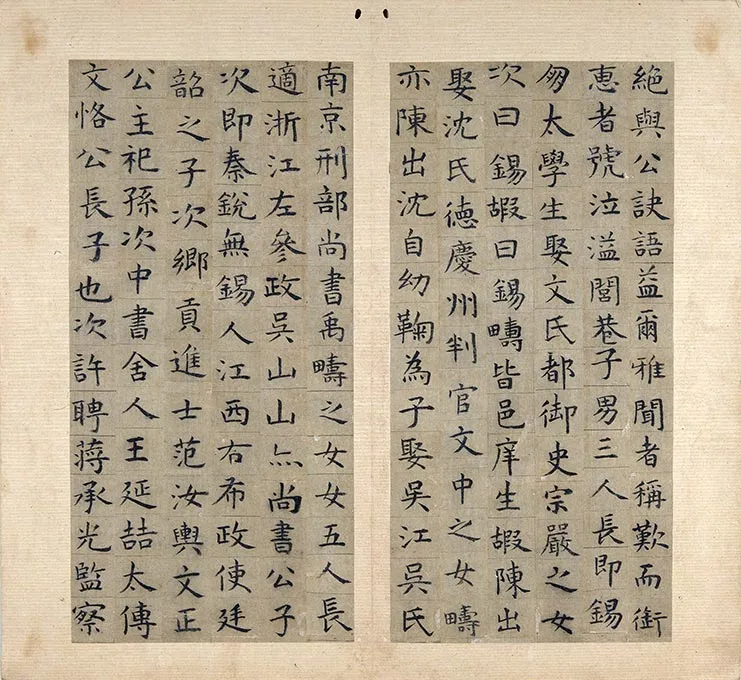 絕與公訣語益爾雅聞者稱歎而銜
惠者號泣溢閭巷子男三人長即錫
太學生娶文氏都御史宗嚴之女
次曰錫嘏曰錫疇皆邑庠生嘏陳出
娶沈氏德慶州判官文中之女疇
亦陳出沈自幼鞠為子娶吳江吳氏
南京刑部尚書禹疇之女女五人長
適浙江左參政吳山山亦尚書公子
次即秦銳無錫人江西右布政使廷
韶之子次鄉貢進士范汝輿文正
公主祀孫次中書舍人王延喆太傅
文恪公長子也次許聘蔣承光監察